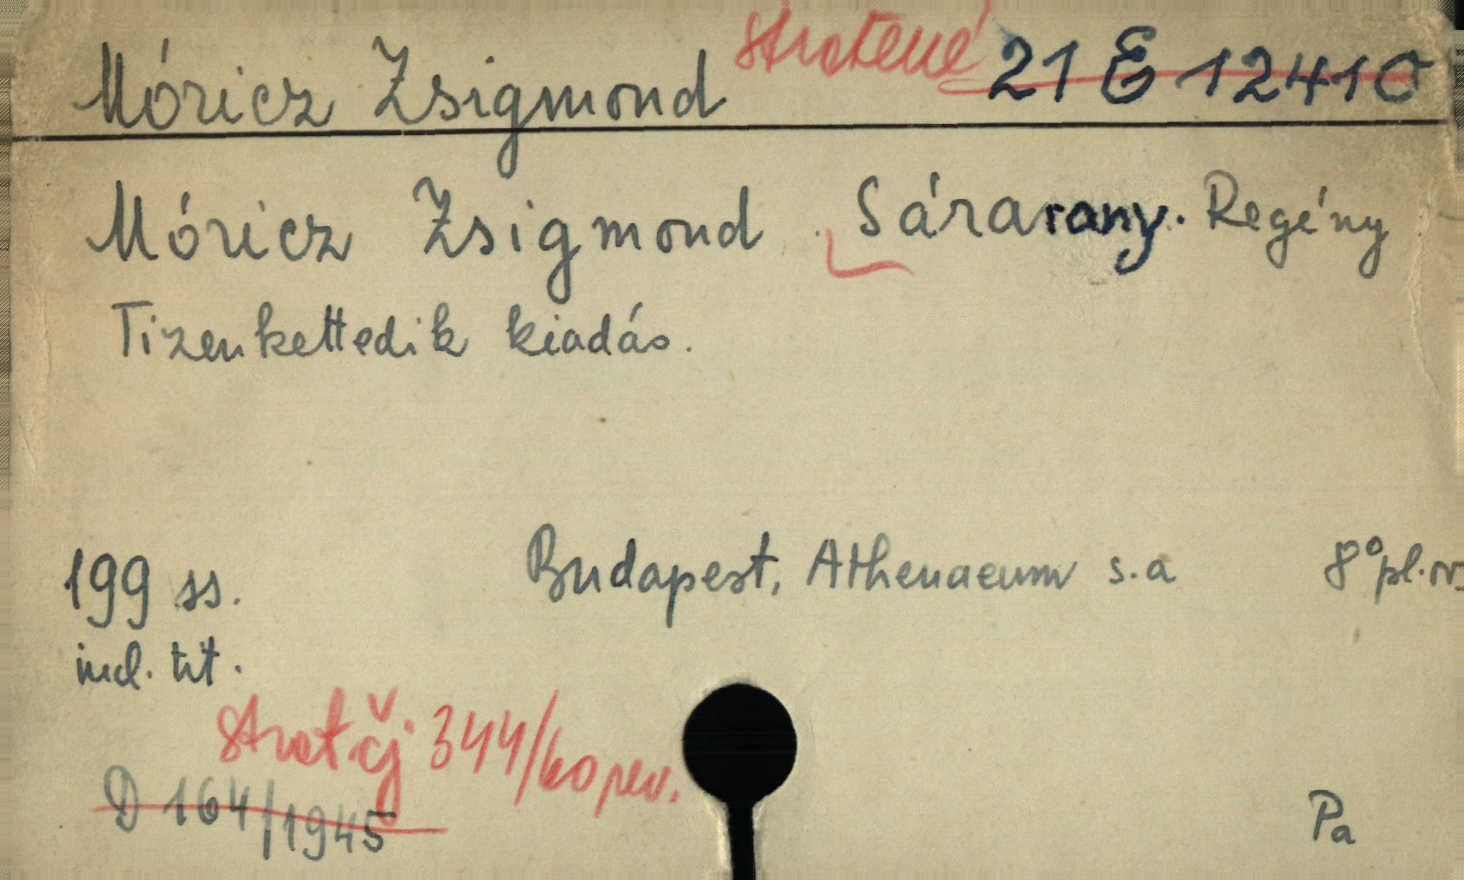 Móricz Zsigmond stratené 21 E 12410
Móricz Zsigmond. Sárarany. Regény
Tizenkettedik kiadás.
199 ss. Budapest, Athenaeum s.a 8° pl.
incl. tit.
strat. čj 344/60 rev.
D 164/1945
Pa